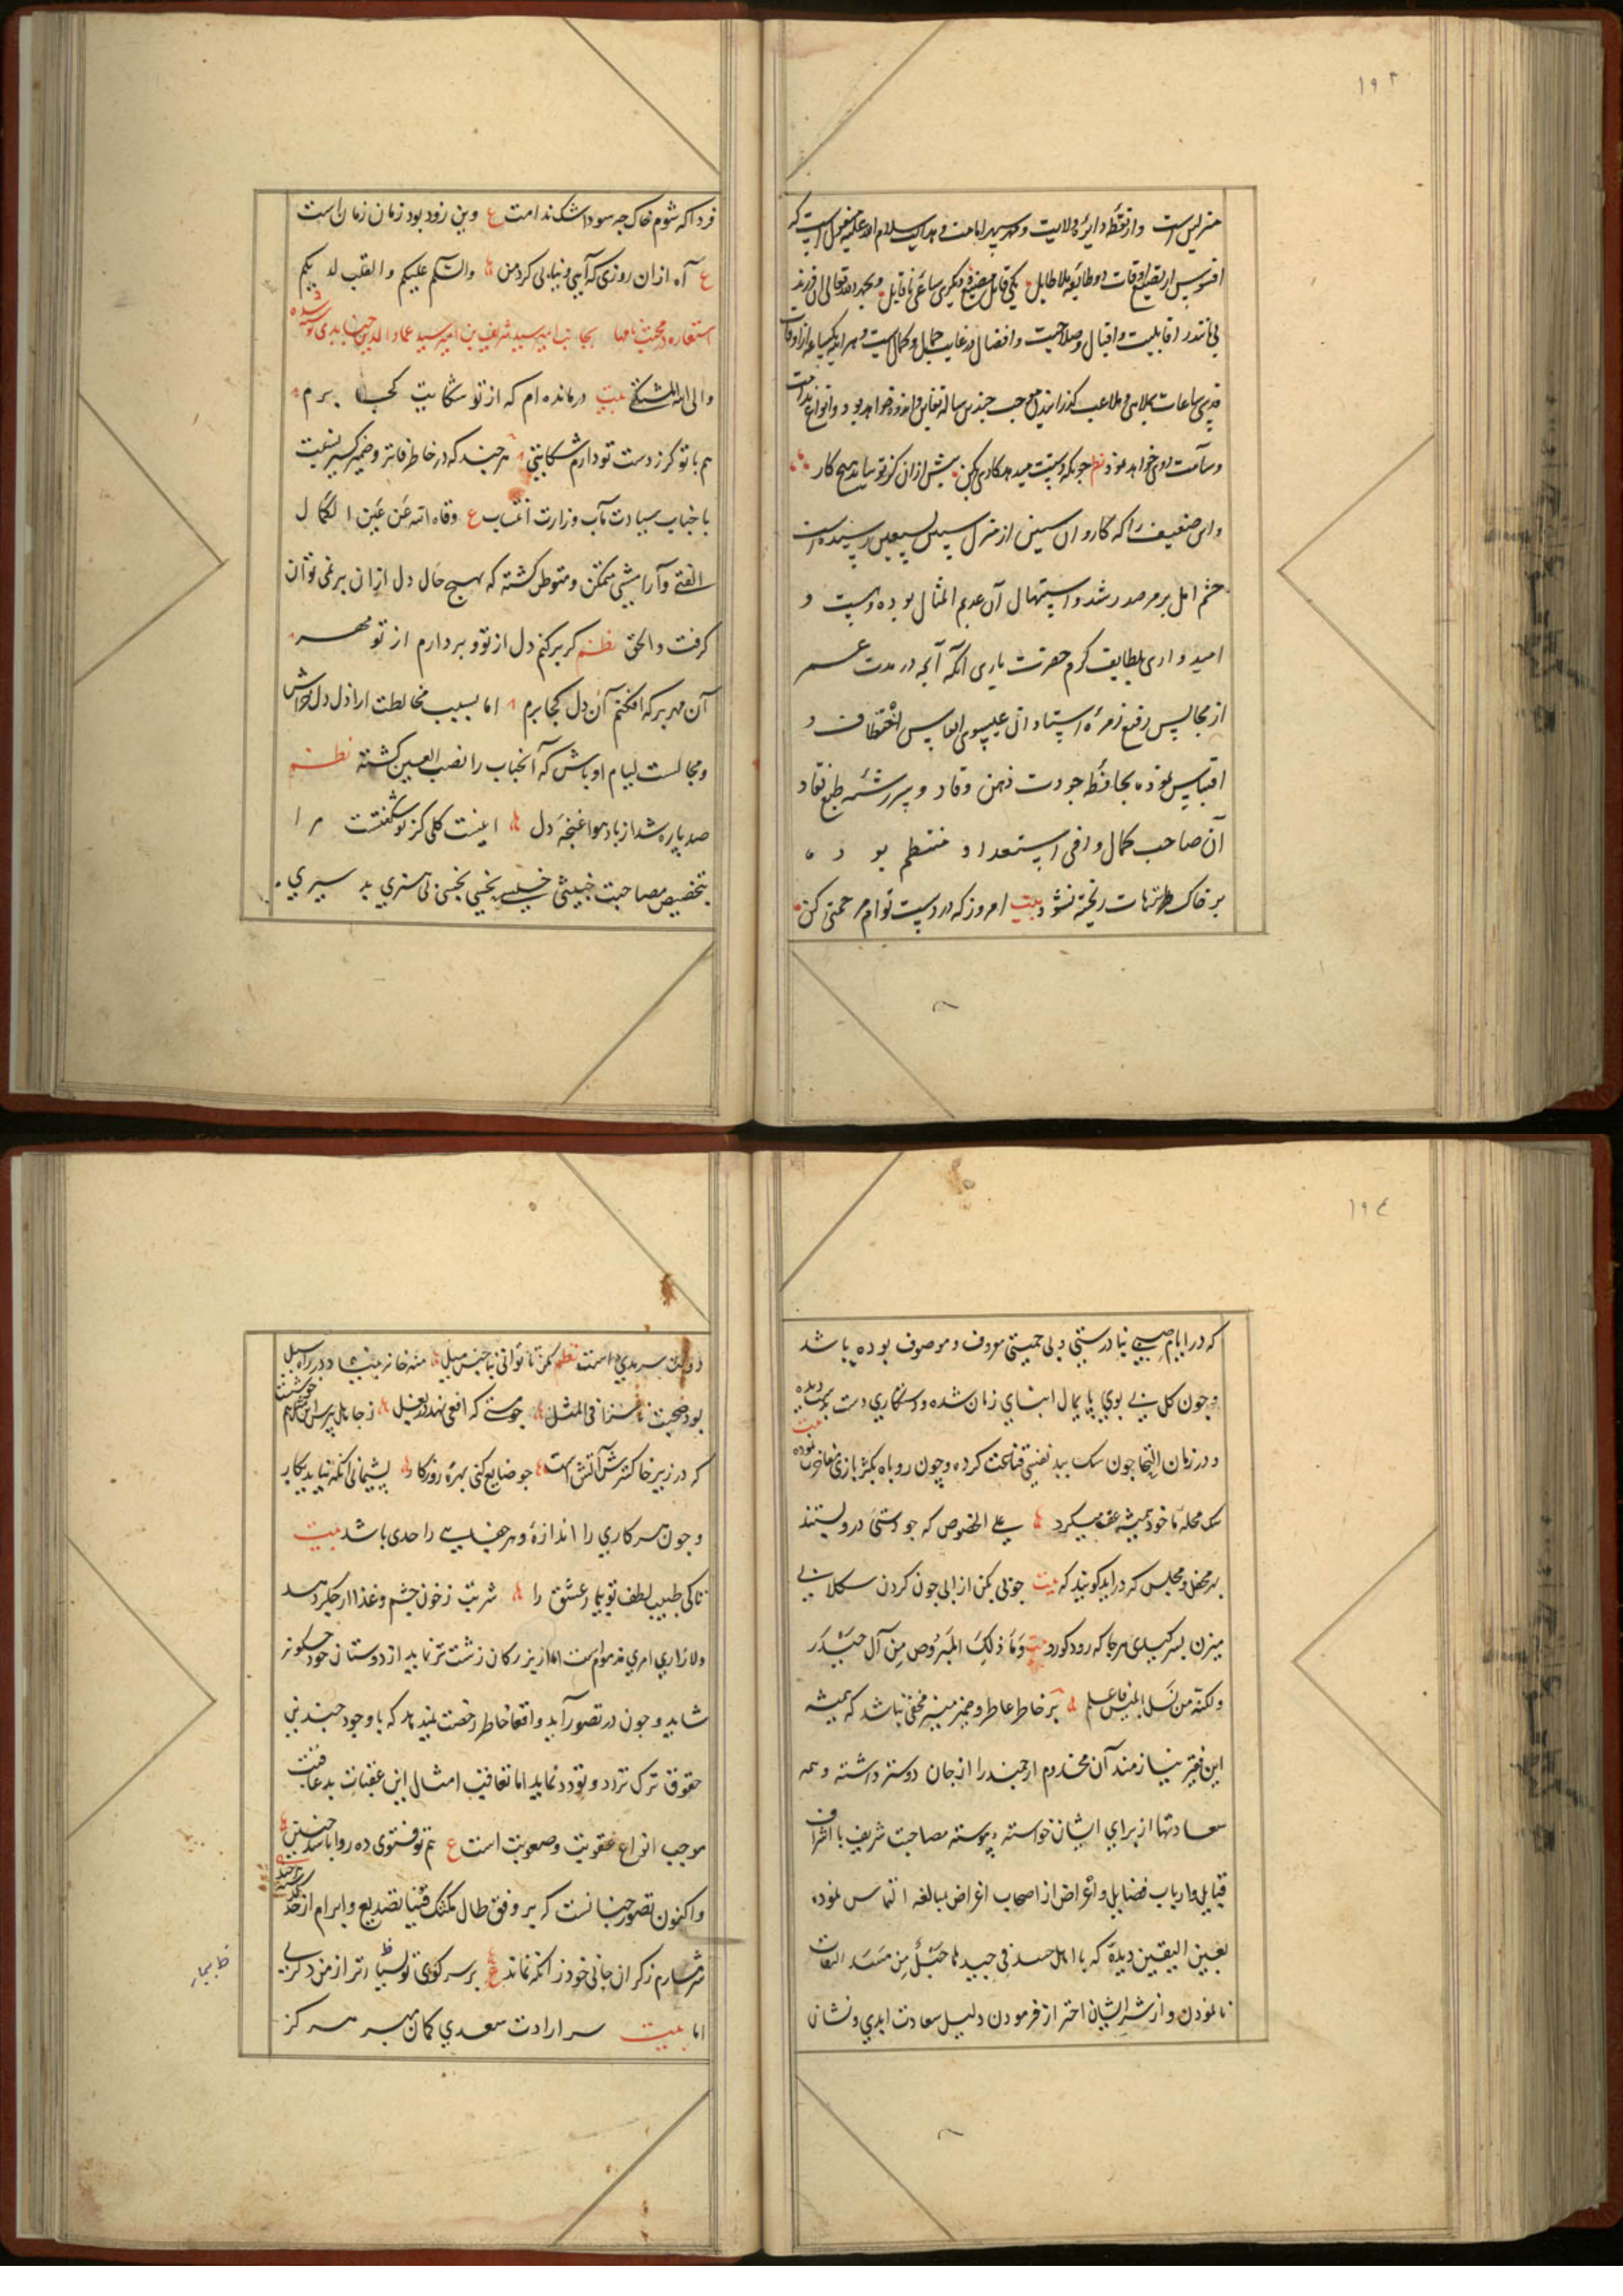 ١٩٣
منزلیست و از نقطه دایره ولایت و مهر سپهر امامت و هدایت سلام الله علیه منقول است که
افسوس از تضییع اوقات دو طایفه بلا طایل یکی قابل مضیع و دیگری ساعی ناقابل و بحمد الله تعالی آن فرزند
بی مانند را قابلیت و اقبال و صلاحیت و افضال در غایت جمال و کمال است و هر آینه یکساعه از اوقات
ساعات بملاهی و ملاعب گذرانیدن موجب چندین ساله تغابن و اندوه خواهد بود و انواع ندامت
و سآمت روی خواهد نمود نظم چو یکه دستت میدهد کاری بکن پیش از آن کز تو نیاید هیچ کار
و این ضعیف را که کاروان سنین از منزل سبعین رسیده است
چشم امل بر مرصد رشد و استیهال آن عدیم المثال بوده و هست و
امیدواری بلطایف کرم حضرت باری آنکه آنچه در مدت عمر
از مجالس رفیع زمرهٔ استادان عیسوی انفاس اختطاف و
اقتباس نموده بحافظه جودت ذهن وقاد و سررشته طبع نقاد
آن صاحب کمال وافی استعداد منتظم بوده
بر خاک ریخته نشود بیت امروز که در دست توام مرحمتی کن
فردا که شوم خاک چه سود اشک ندامت ع وین زود بود زمان زمان است
ع آه از آن روزی که آیی و نیابی گرد من والسلام علیکم والقلب لدیکم
استعاره در محبت نامها بجانب امیر سید شریف بن امیر سید عماد الدین جنابدی نوشته شده
والی الله المشتکی بیت درمانده ام که از تو شکایت کجا برم
هم با تو گر ز دست تو دارم شکایتی هر چند که در خاطر فاتر و ضمیر کسیر نسبت
با جناب سیادت مآب وزارت انتساب ع وقاه الله عن عین الکمال
الفتی و آرامشی متمکن و متوطن گشته که بهیچ حال دل از آن بر نمی توان
گرفت والحق نظم گر برکنم دل از تو و بردارم از تو مهر
آن مهر بر که افکنم آن دل کجا برم اما بسبب مخالطت اراذل دلخراش
و مجالست لیام اوباش که آنجناب را نصب العین گشته نظم
صد پاره شد از باد هوا غنچه دل اینست گلی کز تو شکفتست مرا
بتخصیص مصاحبت خبیثی خسیسی نحسی بی هنری بد سیری
١٩٤
که در ایام صبی بنادرستی و بی حمیتی معروف و موصوف بوده باشد
و چون گل بی بوی پایمال ابنای زمان شده و دستکاری دست بدست دیده
و در زمان التجا چون سگ ببد نفسی قناعت کرده و چون روباه بکژ بازی مفاخرت نموده بیت
سگ محله ما خود همیشه عف میکرد علی الخصوص که جو دستی در و بستند
بهر محفل و مجلس که در آید گویند که بیت چوبی بکن از الی چون کردن سکلابی
میزن بسر گیدی هر جا که رود کوردو بیت وما ذلک المبروص من آل حیدر
ولکنه من نسل ابلیس فاعلم بر خاطر عاطر و ضمیر منیر مخفی نباشد که همیشه
این فقیر نیازمند آن مخدوم ارجمند را از جان دوستر داشته و همه
سعادتها از برای ایشان خواسته و پیوسته مصاحبت شریف با اشراف
قبایل و ارباب فضایل و اغراض از اصحاب اغراض بمبالغه التماس نموده
بعین الیقین دیده که با اهل حسد فی جیدها حبل من مسد التفات
نانمودن و از شر ایشان احتراز فرمودن دلیل سعادت ابدی و نشان
دولت سرمدی است نظم مکن تا توانی بناجنس میل منه خانه بنیاد در راه سیل
بود صحبت ناسزا فی المثل چو مستی که افعی نهد در بغل ز جاهل بپرس این سخن هم خوشست
که در زیر خاکسترش آتش است چو ضایع کنی بهره روزگار پشیمانی آنگه نیاید بکار
و چون هر کاری را اندازهٔ و هر جفایی را حدی باشد بیت
تا کی طبیب لطف تو بیمار عشق را شربت ز خون چشم و غذا از جگر دهد
و لازاری امری مذموم است اما از بزرگان زشت تر نماید از دوستان خود چگونه
شاید و چون در تصور آید واقعا خاطر رخصت نمیدهد که با وجود چندین
حقوق ترک تردد و تودد نماید اما تعاقب امثال این عقبات بد عاقبت
موجب انواع عقوبت و صعوبت است ع هم تو فتوی ده روا باشد چنین
و اکنون تصور چنانست که بر وفق طال مکثک فینا تصدیع و ابرام از حد گذشته
شرمسارم ز گران جانی خود زانکه نماند ع بر سر کوی تو بسیار تر از من دگری
اما بیت سر ارادت سعدی گمان مبر هرگز
ظ بیمار